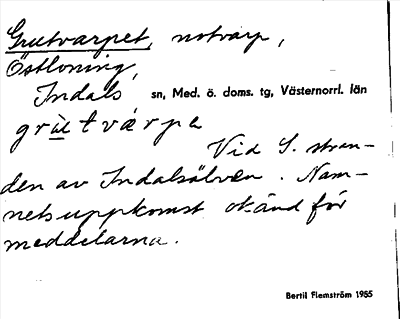 Grutvarpet, notvarp,
Östloning,
Indals sn, Med. ö. doms. tg, Västernorrl. län
grùtvárpe
Vid S. stran-
den av Indalsälven. Nam-
nets uppkomst okänd för
meddelarna.
Bertil Flemström 1955